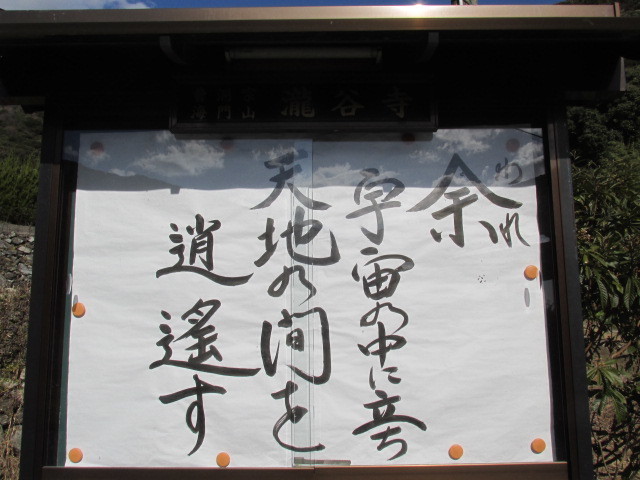 瀧谷寺
余
われ
宇宙の中に立ち
天地の間を
逍遙す